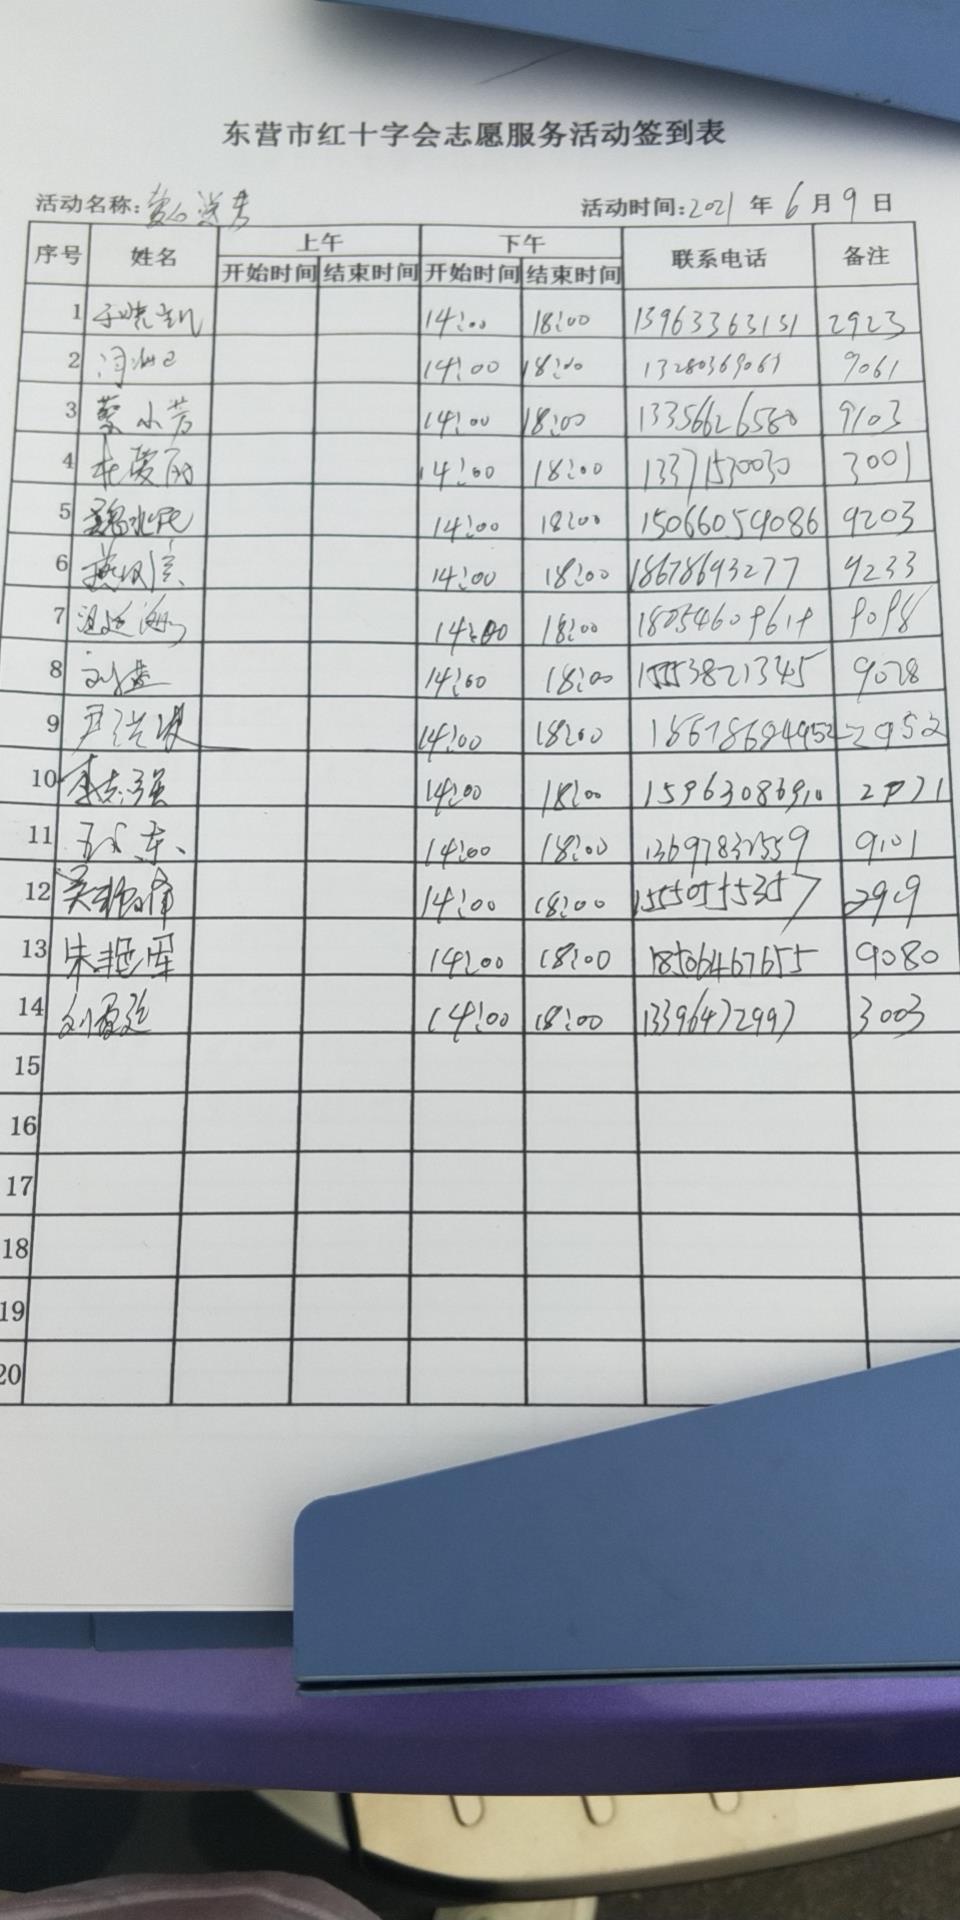 东营市红十字会志愿服务活动签到表
活动名称: 活动时间:2021 年 6 月 9 日
序号 姓名 上午 下午 联系电话 备注
开始时间 结束时间 开始时间 结束时间
1 14:00 18:00 13963363131 2923
2 14:00 18:00 13280369061 9061
3 蔡小芳 14:00 18:00 13356626580 9103
4 杜爱丽 14:00 18:00 13371530030 3001
5 14:00 18:00 15066059086 9203
6 14:00 18:00 18678693277 9233
7 14:00 18:00 18054609619 9098
8 刘 14:00 18:00 15553821345 9028
9 14:00 18:00 18678684952 2952
10 李志强 14:00 18:00 15963086910 2971
11 14:00 18:00 13697832559 9101
12 14:00 18:00 15550555357 2919
13 朱艳军 14:00 18:00 18506467655 9080
14 刘 14:00 18:00 13396472997 3003
15
16
17
18
19
20